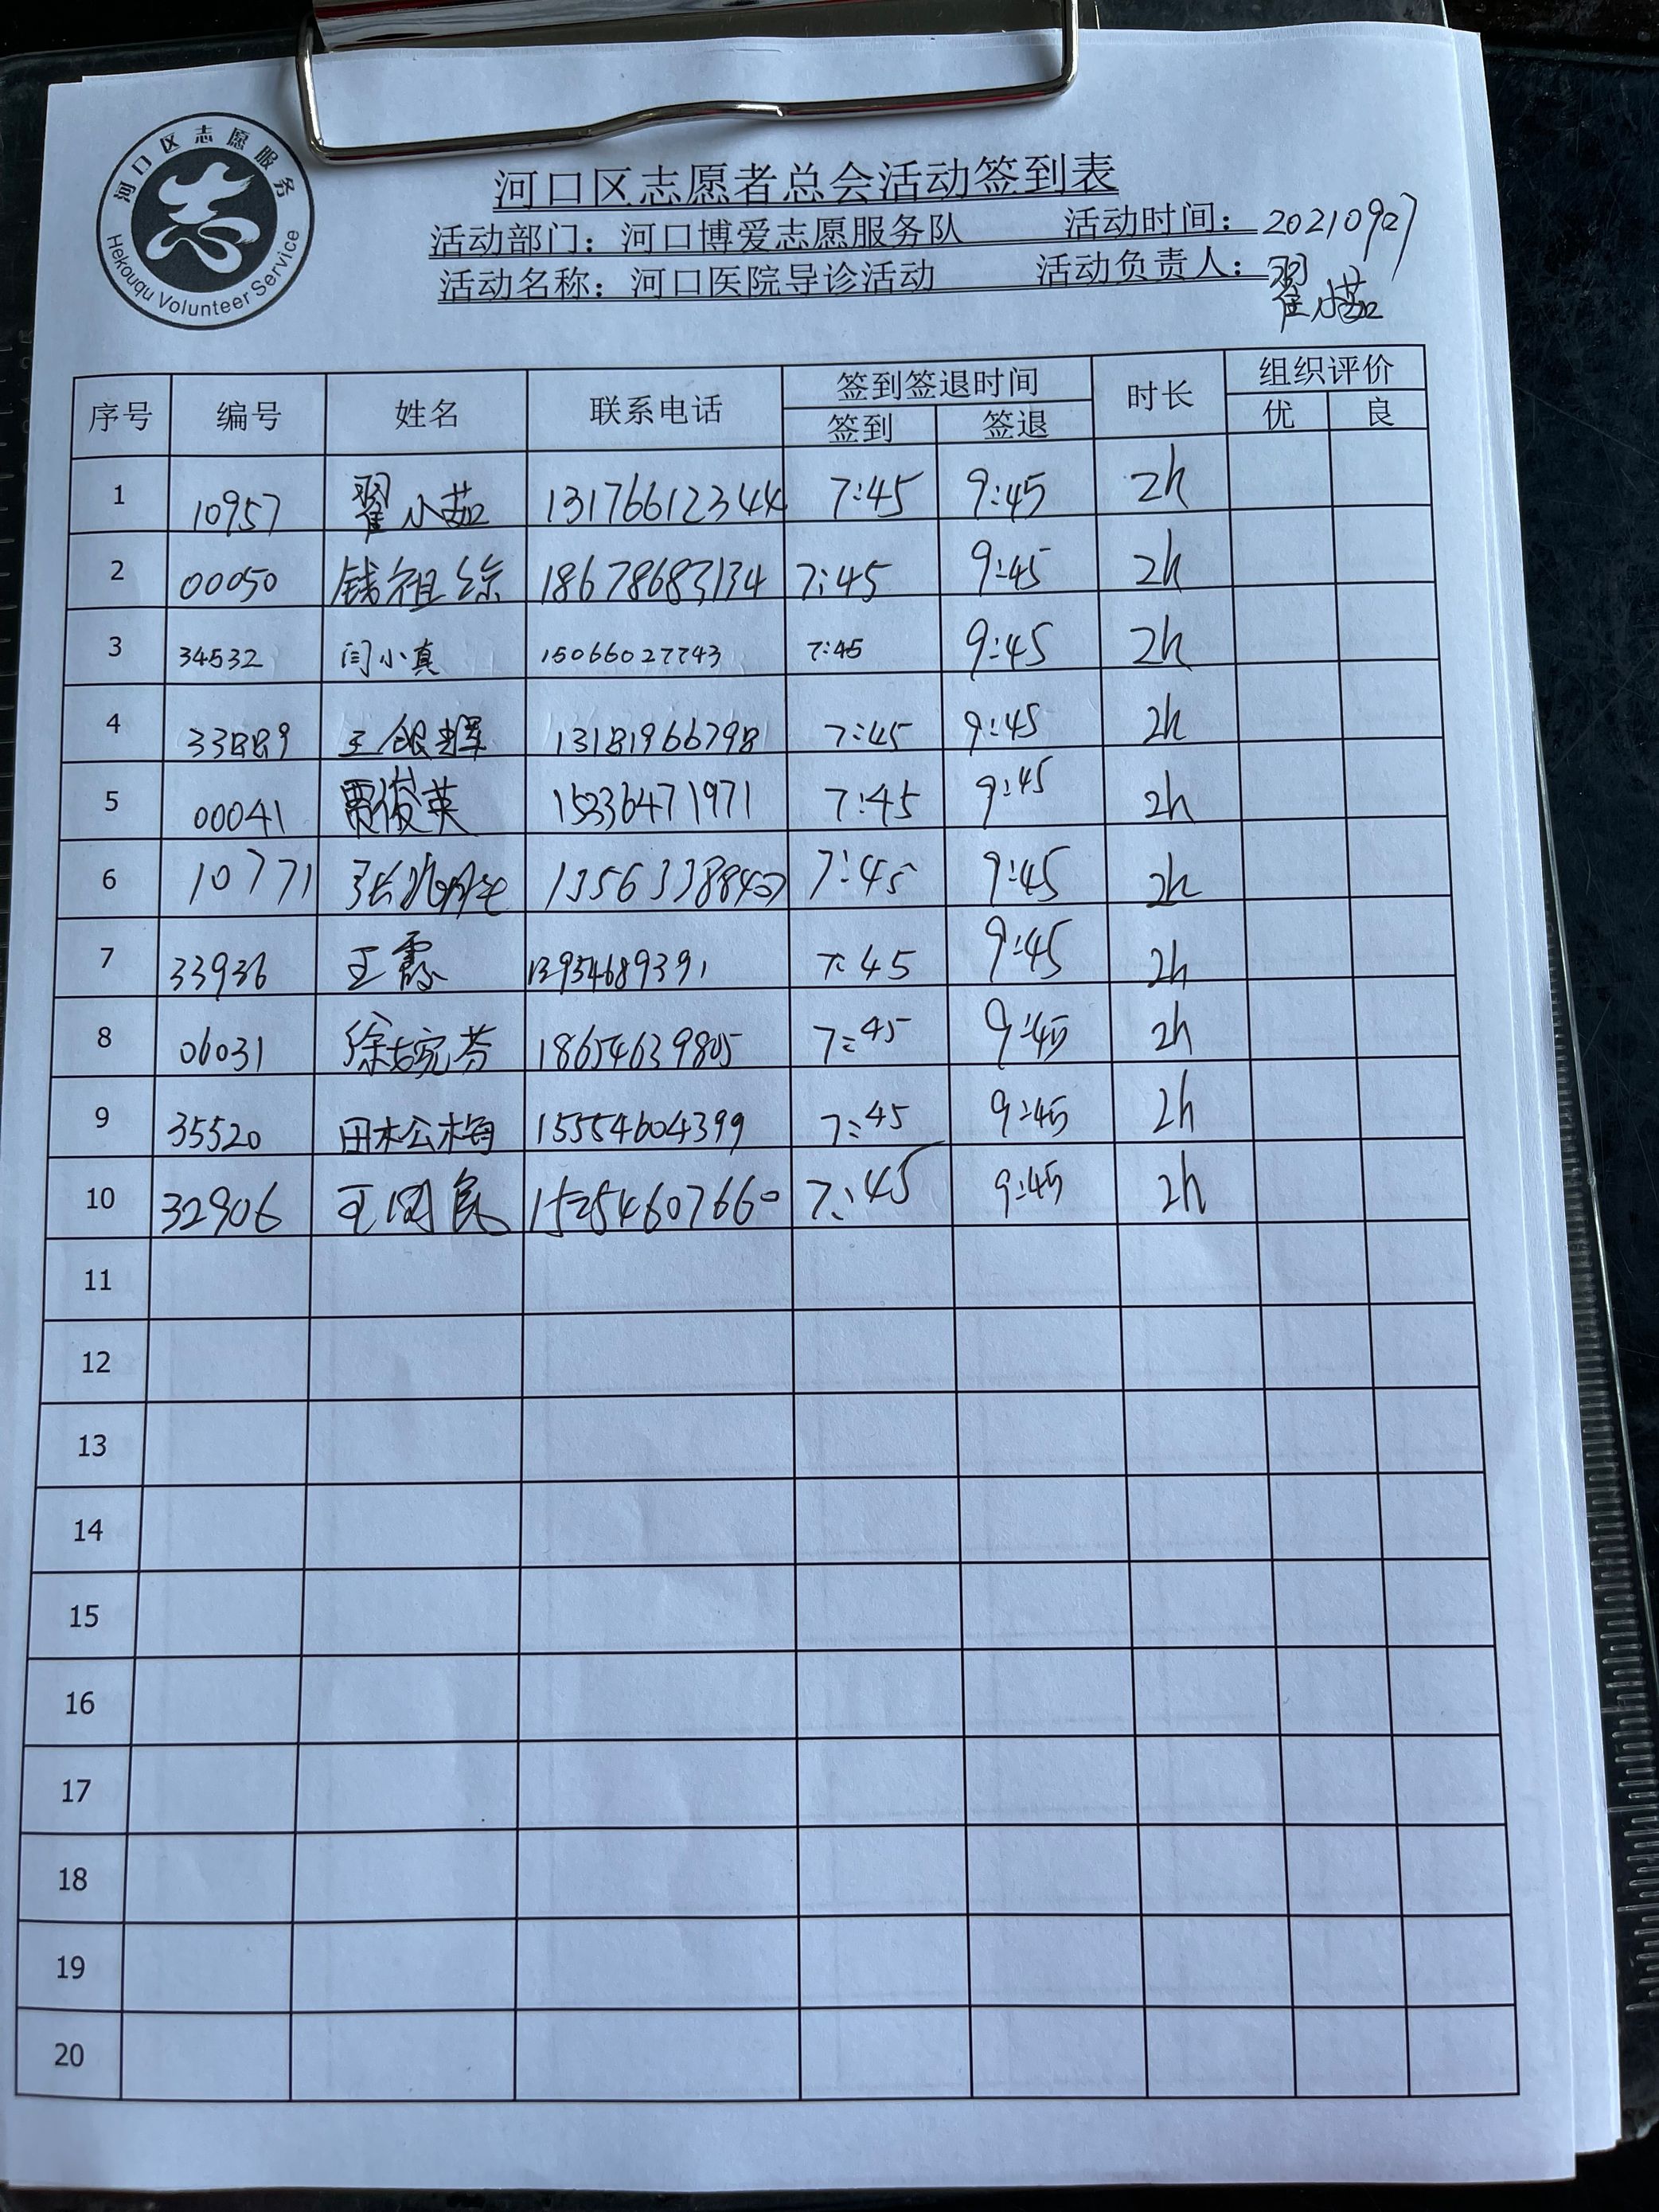 河口区志愿服务
Hekouqu Volunteer Service
河口区志愿者总会活动签到表
活动部门：河口博爱志愿服务队 活动时间：20210927
活动名称：河口医院导诊活动 活动负责人：翟小茹
序号 编号 姓名 联系电话 签到签退时间 时长 组织评价
签到 签退 优 良
1 10957 翟小茹 13176612344 7:45 9:45 2h
2 00050 钱祖综 18678683134 7:45 9:45 2h
3 34532 闫小真 15066027743 7:45 9:45 2h
4 33889 王银辉 13181966798 7:45 9:45 2h
5 00041 贾俊英 15236471971 7:45 9:45 2h
6 10771 张 7:45 9:45 2h
7 33936 王霞 13954689391 7:45 9:45 2h
8 06031 徐婉芬 18654639805 7:45 9:45 2h
9 35520 田松梅 15554604399 7:45 9:45 2h
10 32906 王国良 15254607660 7:45 9:45 2h
11
12
13
14
15
16
17
18
19
20